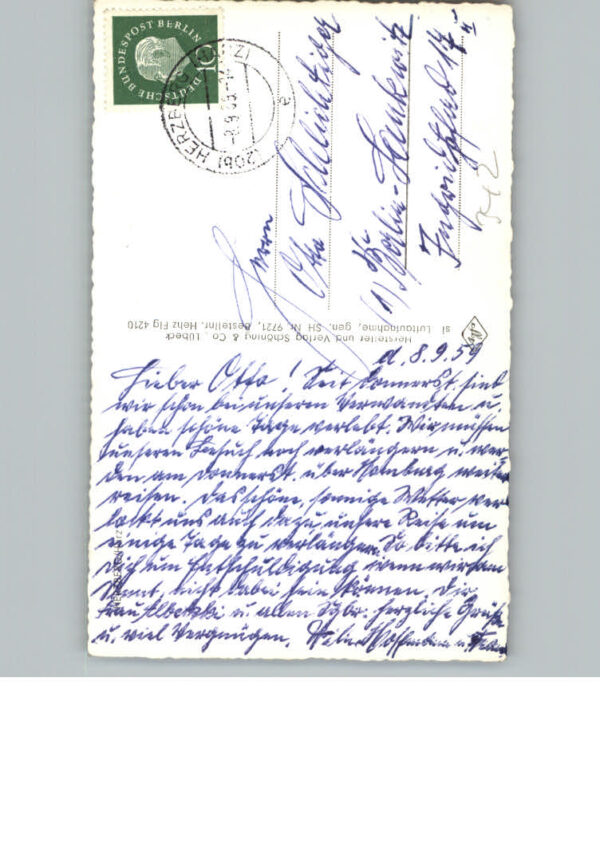 DEUTSCHE BUNDESPOST BERLIN
10
(20b) HERZBERG (HARZ)
-8.9.59
a
Herrn
Otto Schlichtiger
(1) Berlin-Lankwitz
Hersteller und Verlag Schöning & Co., Lübeck
sl Luftaufnahme, gen. SH Nr. 9721, Bestellnr. Hehz Flg 4210
d. 8.9.59
Lieber Otto! Seit Donnerst. sind
wir schon bei unseren Verwandten u.
haben schöne Tage verlebt. Wir müssen
unseren Besuch noch verlängern u. wer-
den am Donnerst. über Hamburg weiter
reisen. Das schöne, sonnige Wetter ver-
lockt uns auch dazu, unsere Reise um
einige Tage zu verlängern. So bitte ich
Dich um Entschuldigung wenn wir am
nicht dabei sein können. Dir,
Frau u. allen herzliche Grüße
u. viel Vergnügen.